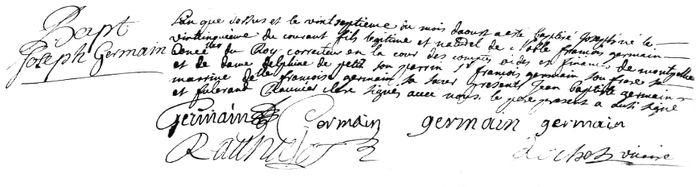 Bapt
Joseph Germain
L'an que dessus et le vint septieme du mois daoust a este baptisé Joseph né le
vintcinquieme du courant fils legitime et naturel de noble francois germain
Concer du Roy correcteur en la cour des comptes aides et finances de montpellier
et de dame delphine de petit son parrin francois germain son frere sa
marrine dlle francoise germain sa soeur presents Jean baptiste germain
et fulcrand Clauzier clerc signés avec nous le pere present a aussi signé
Germain Germain germain germain
vicaire